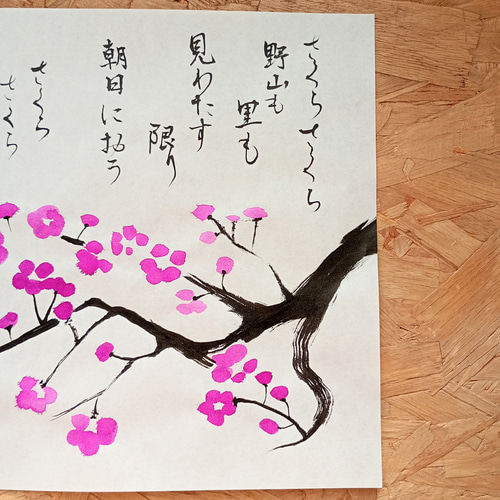 さくらさくら
野山も
里も
見わたす
限り
朝日ににおう
さくら
さくら